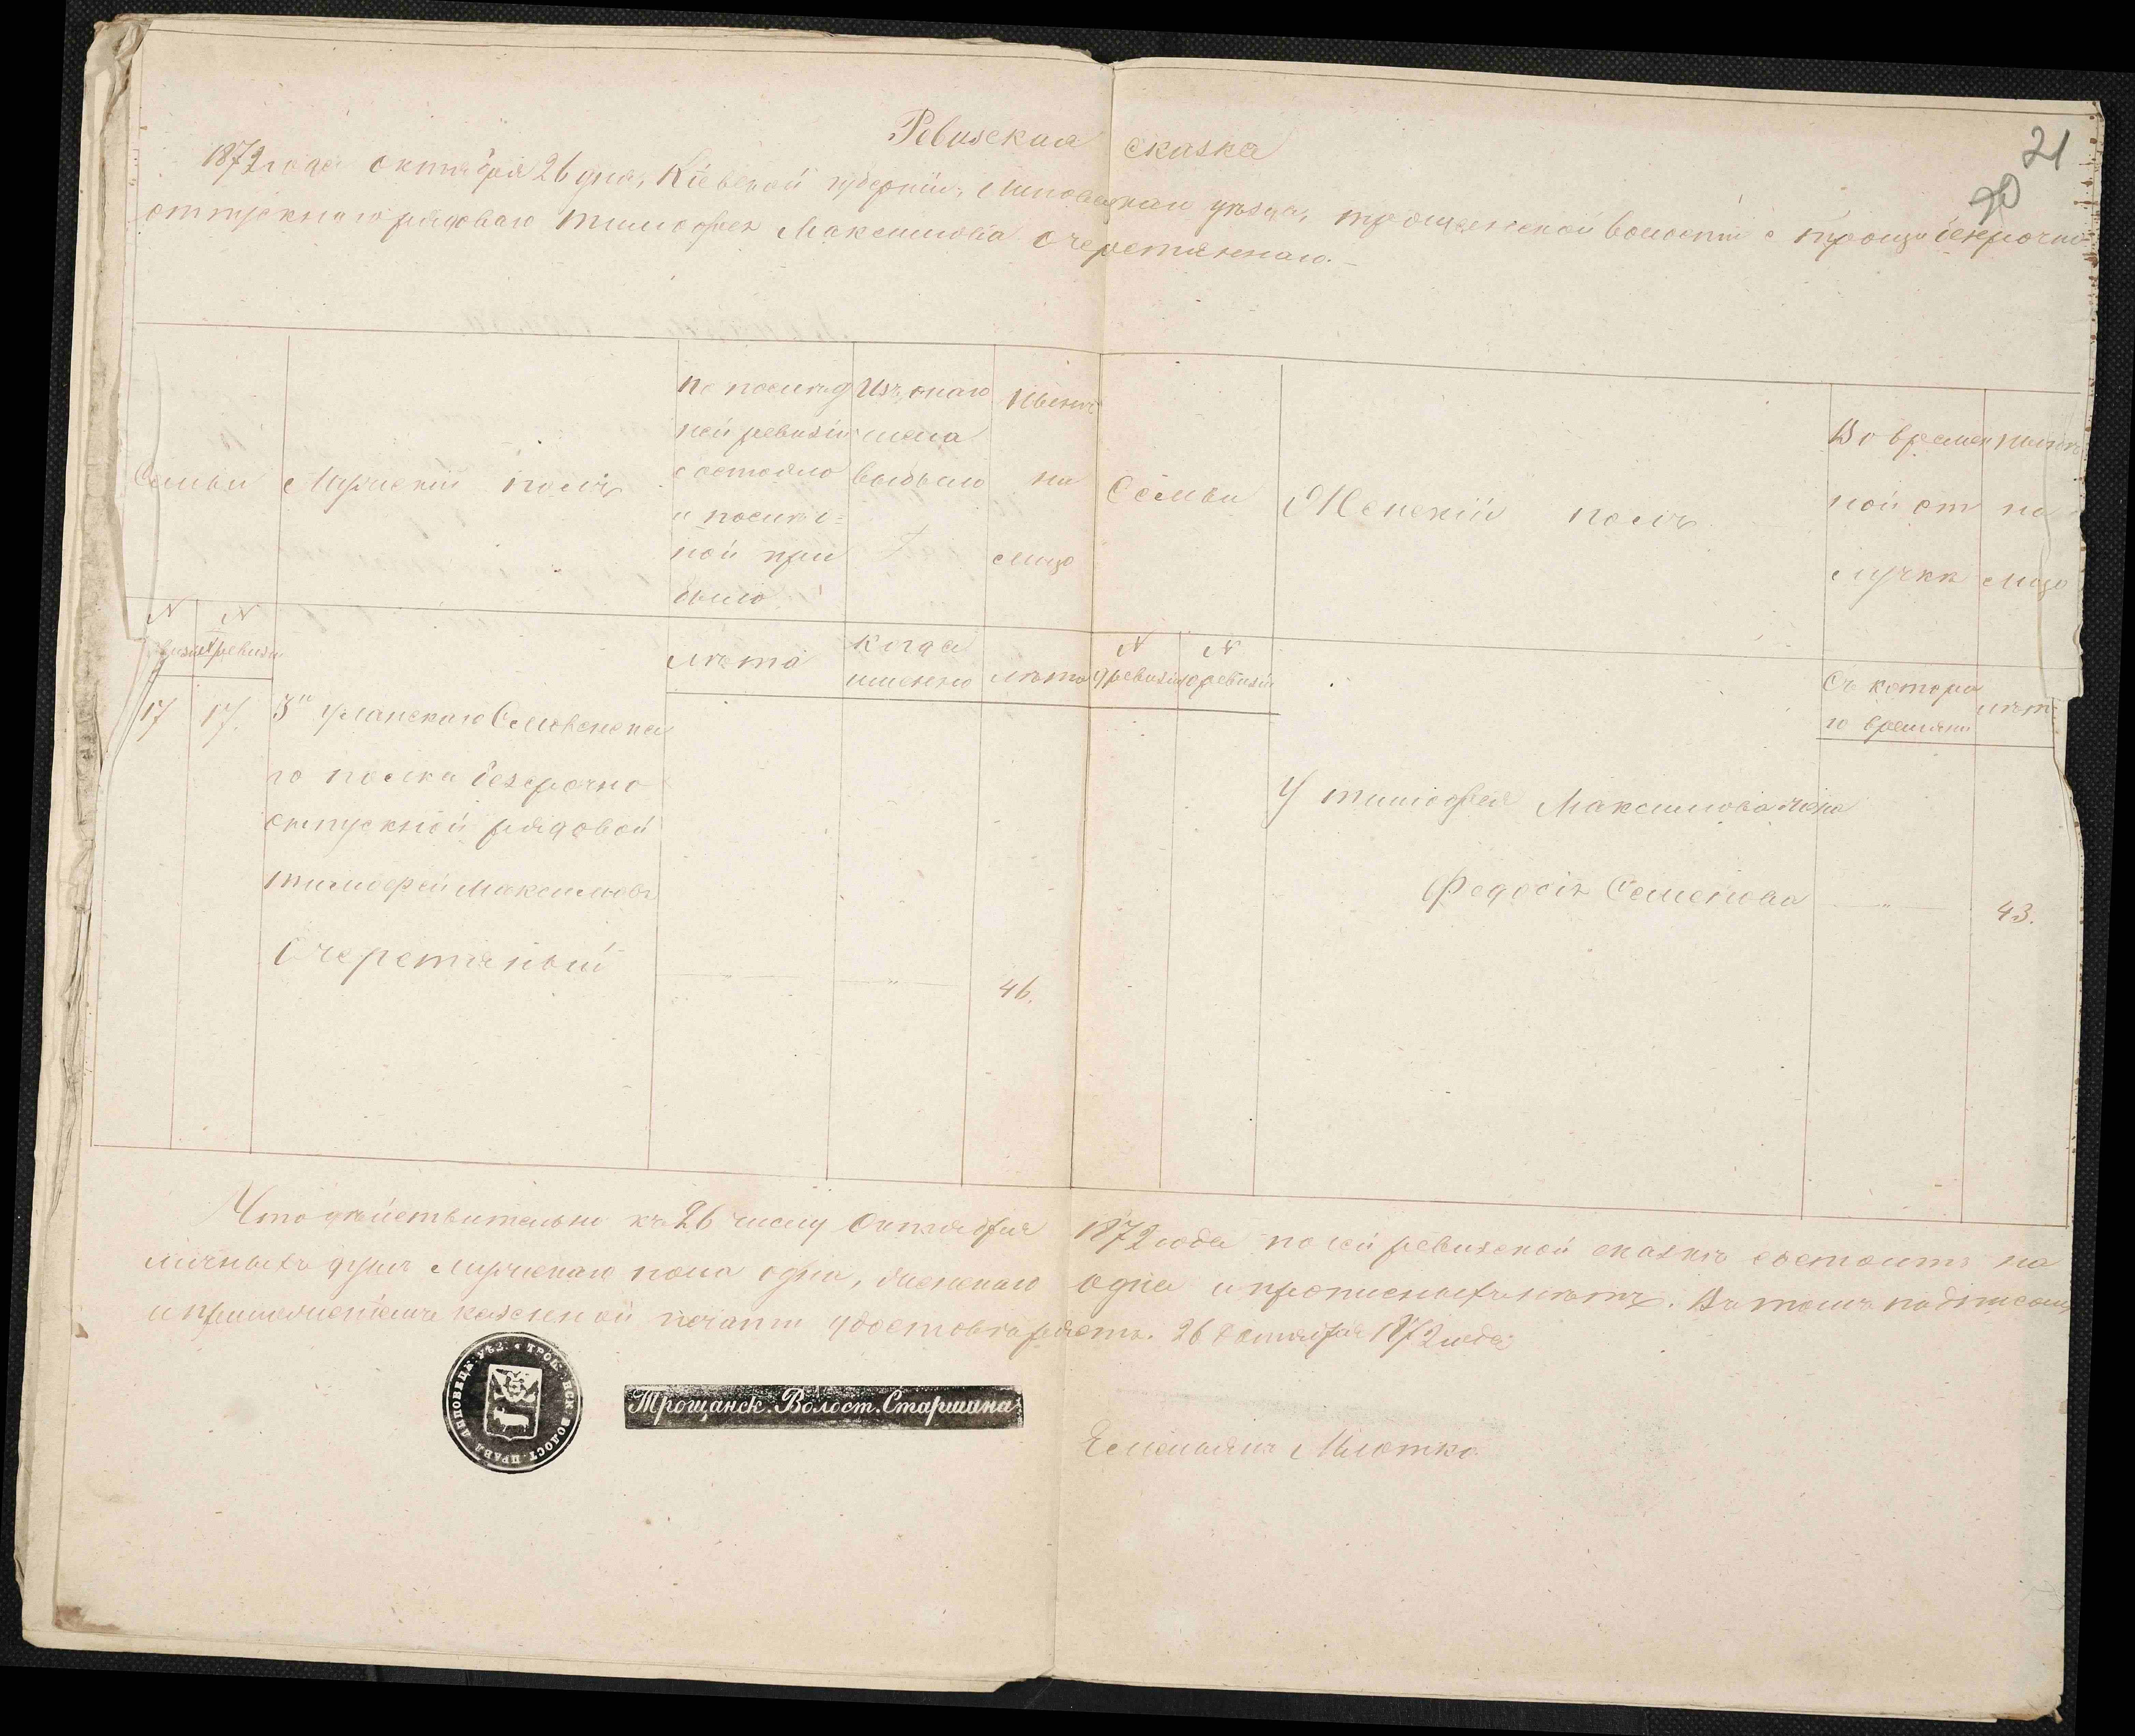 21
20
Ревизская сказка
1872 года октября 26 дня, Кіевской губерніи, Липовецкаи уѣзда, трощанской волости с трощи безсрочно
отпускнаго рядоваго тимофея Максимова Очеретяннаго.
Семьи
Мужескій полъ
по послѣд
ней ревизіи
состояло
и послѣ о=
ной при
было
Изъ онаго
числа
выбыло
Нынѣ
на
лицо
Семьи
Женскій полъ
Во времен
ной от
лучкѣ
нынѣ
на
лицо
N
N
ревизіи
лѣта
когда
именно
лѣта
N
9 ревизіи
N
10 ревизіи
Съ котора
го времяни
лѣт
17
17.
3го уланскаго Смоленска
го полка безсрочно
отпускной рядовой
тимофей Максимовъ
Очеретяный
46.
У тимофея Максимова жена
Федосія Семенова
43.
Что дѣйствительно къ 26 числу Октября 1872 года по сей ревизской сказкѣ состоитъ на
личныхъ душъ мужескаго пола одна, женскаго одна и прописныхъ нѣтъ. Въ томъ подписом
и приложеніемъ казенной печати удостовѣряетъ. 26 Октября 1872 года
ЛИПОВЕЦК: УѢЗ: ТРОЩ: ВОЛОСТ. ПРАВЛ
Трощанск. Волост. Старшина
Емельянъ Млотко